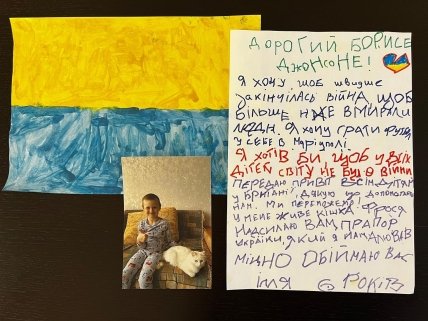 ДОРОГИЙ БОРИСЕ
ДЖОНСОНЕ!
Я ХОЧУ, ЩОБ ШВИДШЕ
ЗАКІНЧИЛАСЬ ВІЙНА, ЩОБ
БІЛЬШЕ НЕ ВМИРАЛИ
ЛЮДИ. Я ХОЧУ ГРАТИ
У СЕБЕ В МАРІУПОЛІ.
Я ХОТІВ БИ, ЩОБ У ВСІХ
ДІТЕЙ СВІТУ НЕ БУЛО ВІЙНИ
ПЕРЕДАЮ ПРИВІТ ВСІМ ДІТЯМ
У БРИТАНІЇ. ДЯКУЮ ЩО ДОПОМАГАЄТЕ
НАМ. МИ ПЕРЕМОЖЕМ!
У МЕНЕ ЖИВЕ КІШКА ФРОСЯ
НАДСИЛАЮ ВАМ ПРАПОР
УКРАЇНИ, ЯКИЙ Я НАМАЛЮВАВ
МІЦНО ОБІЙМАЮ ВАС
ІЛЛЯ 6 РОКІВ